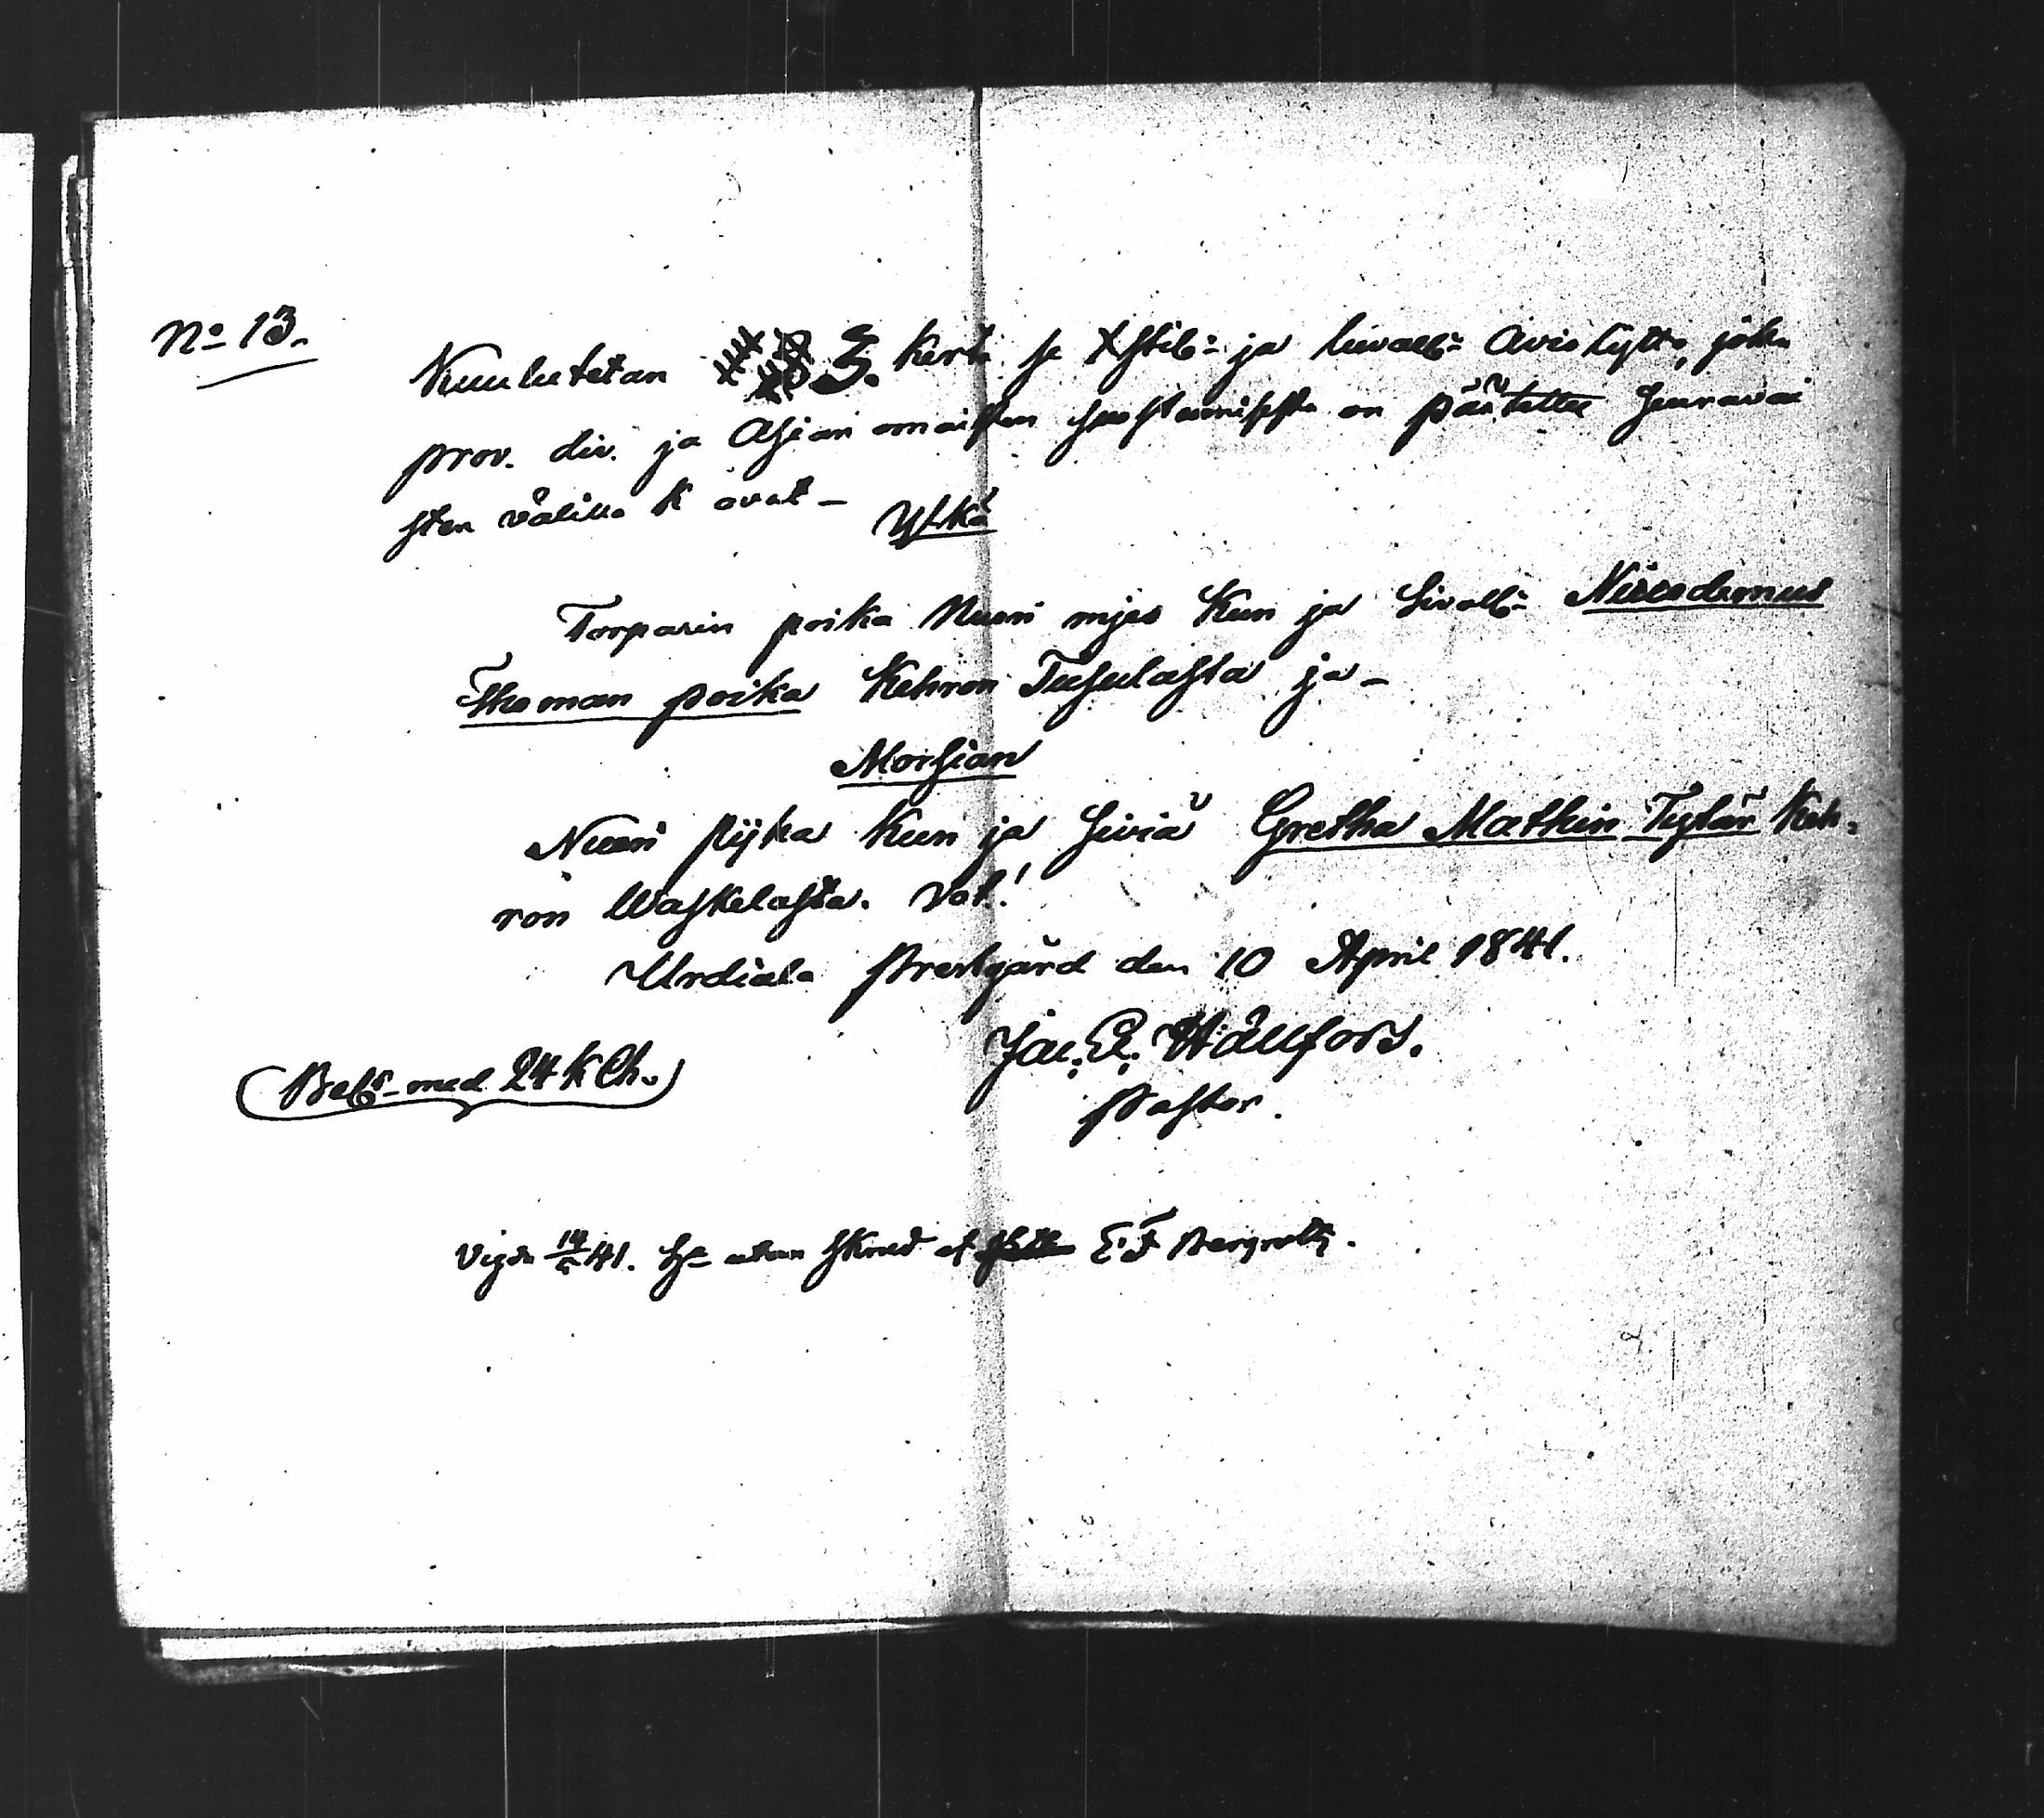 No 13.
Kuulutetan 3. kerta se Xstil= ja luvall= Avio kytto, joka
prov. div. ja Asian omaisten suostumisesta on päätetty seuravai
sten välillä k ovat –
Yrkä
Torparin poika Nuori mjes Kun ja Sivall= Nicodemus
Thoman poika Kehron Tusulasta ja –
Morsian
Nuori pijka Kun ja Siviä Gretha Mathin Tytär Keh=
ron Waskelasta. Vot!
Urdiala Prestgård den 10 April 1841.
Jac. E. Wällfors.
Pastor.
(Betr med 24 k Ch.)
Vigde 14/5 41. utan skrud af E F Bergroth.